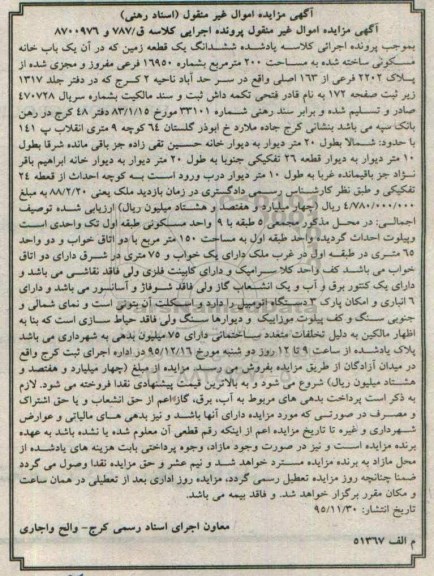 آگهی مزایده اموال غیر منقول (اسناد رهنی)
آگهی مزایده اموال غیر منقول پرونده اجرایی کلاسه ق/۷۸۷ و ۸۷۰۰۹۷۶
بموجب پرونده اجرائی کلاسه یادشده ششدانگ یک قطعه زمین که در آن یک باب خانه
مسکونی ساخته شده به مساحت ۲۰۰ مترمربع بشماره ۱۶۹۵۰ فرعی مفروز و مجزی شده از
پلاک ۲۲۰۲ فرعی از ۱۶۳ اصلی واقع در سر حد آباد ناحیه ۲ کرج که در دفتر جلد ۱۳۱۷
زیر ثبت صفحه ۱۷۲ به نام قادر فتحی تکمه داش ثبت و سند مالکیت بشماره سریال ۴۷۰۷۲۸
صادر و تسلیم شده و برابر سند رهنی شماره ۳۳۱۰۱ مورخ ۸۳/۱/۱۵ دفتر ۴۸ کرج در رهن
بانک سپه می باشد بنشانی کرج جاده ملارد خ ابوذر گلستان ۶۴ کوچه ۹ متری انقلاب پ ۱۴۱
با حدود: شمالا بطول ۲۰ متر دیوار به دیوار خانه حسین تقی زاده جز باقی مانده شرقا بطول
۱۰ متر دیوار به دیوار قطعه ۲۶ تفکیکی جنوبا به طول ۲۰ متر دیوار به دیوار خانه ابراهیم باقر
نژاد جز باقیمانده غربا به طول ۱۰ متر دیوار درب ورود است بـه کوچه احداث از قعطه ۲۴
تفکیکی و طبق نظر کارشناس رسمی دادگستری در زمان بازدید ملک یعنی ۸۸/۲/۲۰ به مبلغ
۴/۷۸۰/۰۰۰/۰۰۰ ریال (چهار میلیارد و هفتصد و هشتاد میلیون ریال) ارزیابی شده توصیف
اجمالی: در محل مذکور مجتمعی ۵ طبقه با ۹ واحد مسکونی طبقه اول تک واحدی است
وپیلوت احداث گردیده واحد طبقه اول به مساحت ۱۵۰ متر مربع با دو اتاق خواب و دو واحد
۶۵ متری در طبقه اول در غرب ملک دارای یک خواب و ۷۵ متری در شرق دارای دو اتاق
خواب می باشد کف واحد کلا سرامیک و دارای کابینت فلزی ولی فاقد نقاشی می باشد و
دارای یک کنتور برق و آب و یک انشعاب گاز ولی فاقد شوفاژ و آسانسور می باشد و دارای
۶ انباری و امکان پارک ۳ دستگاه اتومبیل را دارد و اسکلت آن بتوی است و نمای شمالی و
جنوبی سنگ و کف پیلوت موزاییک و دیوارها سنگ ولی فاقد حیاط سازی است که بنا به
اظهار مالکین به دلیل تخلفات متعدد ساختمانی دارای ۷۵ میلیون بدهی به شهرداری می باشد
پلاک یادشده از ساعت ۹ تا ۱۲ روز دو شنبه مورخ ۹۵/۱۲/۱۶ در اداره اجرای ثبت کرج واقع
در میدان آزادگان از طریق مزایده بفروش می رسد. مزایده از مبلغ (چهار میلیارد و هفتصد و
هشتاد میلیون ریال) شروع می شود و به بالاترین قیمت پیشنهادی نقدا فروخته می شود. لازم
به ذکر است پرداخت بدهی های مربوط به آب، برق، گاز/اعم از حق انشعاب و یا حق اشتراک
و مصرف در صورتی که مورد مزایده دارای آنها باشد و نیز بدهی های مالیاتی و عوارض
شهرداری و غیره تا تاریخ مزایده اعم از اینکه رقم قطعی آن معلوم شده یا نشده باشد به عهده
برنده مزایده است و نیز در صورت وجود مازاد، وجوه پرداختی بابت هزینه های یادشده از
محل مازاد به برنده مزایده مسترد خواهد شد و نیم عشر و حق مزایده نقدا وصول می گردد
ضمنا چنانچه روز مزایده تعطیل رسمی گردد، مزایده روز اداری بعد از تعطیلی در همان ساعت
و مکان مقرر برگزار خواهد شد. و فاقد بیمه می باشد.
تاریخ انتشار: ۹۵/۱۱/۳۰
معاون اجرای اسناد رسمی کرج- والح واجاری
م الف ۵۱۳۶۷